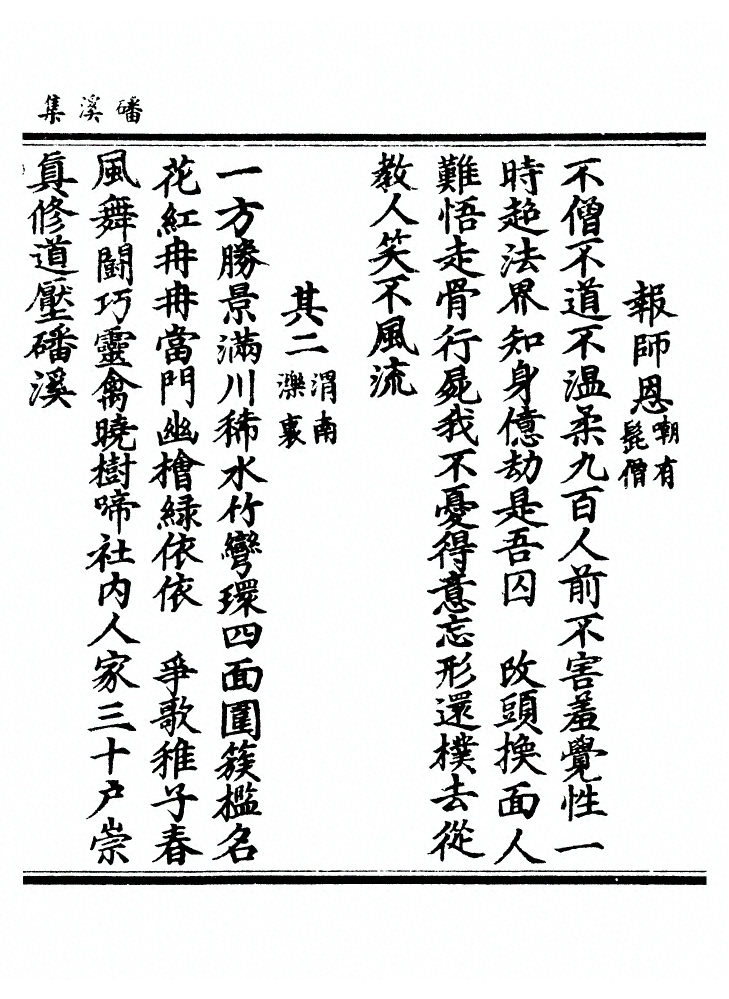 磻溪集
報師恩嘲有髭僧
不僧不道不温柔九百人前不害羞覺性一
時超法界知身億劫是吾囚　改頭換面人
難悟走骨行屍我不憂得意忘形還樸去從
教人笑不風流
其二渭南濼裏
一方勝景滿川稀水竹彎環四面圍簇檻名
花紅冉冉當門幽檜緑依依　爭歌稚子春
風舞鬪巧靈禽曉樹啼社内人家三十户崇
眞修道壓磻溪